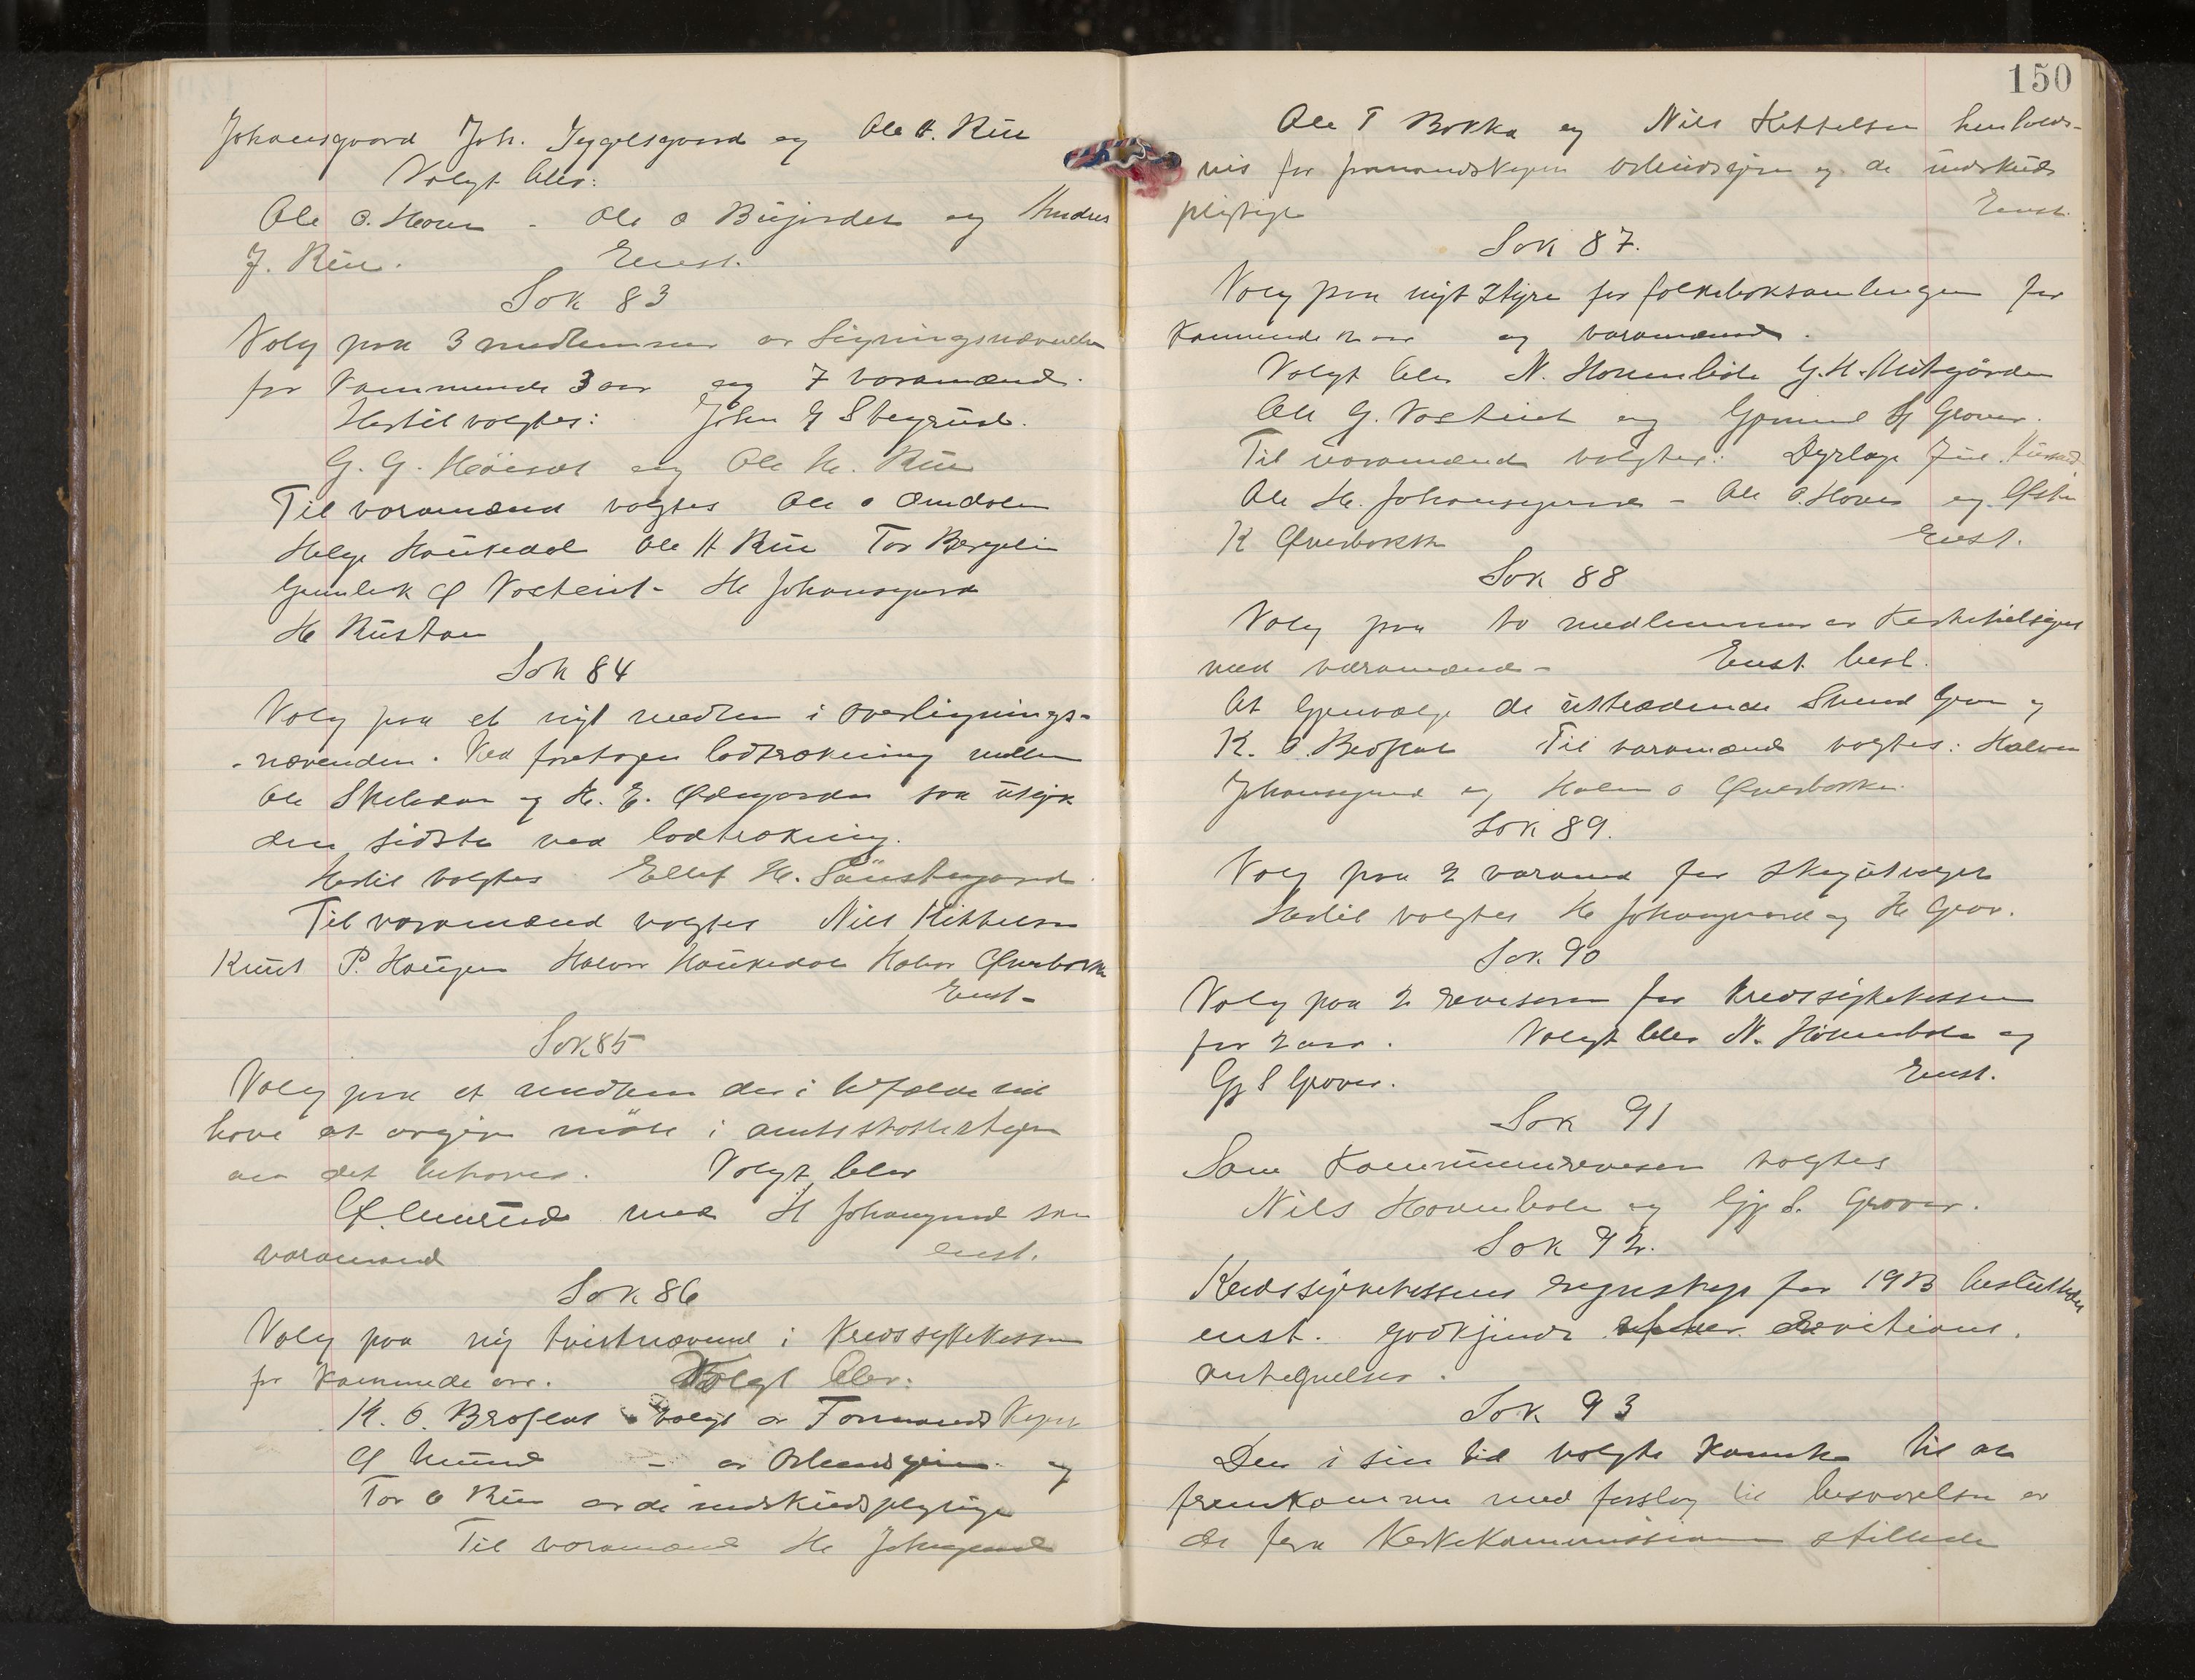 Johansgaard Joh. Iggelsgaard og Ole H. Rue
Valgt blev:
Ole O. Hovin - Ole O Bujordet og Andres
J. Rue. Enst.
Sak 83
Valg paa 3 medlemmer av Ligningsnævnden
for kommende 3 aar og 7 varamænd.
Hertil valgtes: John G Stegrud.
G. G. og Ole H. Rue
Til varamænd valgtes Ole O Omdalen
Helge Haukedal Ole H Rue Tor Bergelin
Gunleik Ø Nosterut - H Johansgaard
H Rustan
Sak 84
Valg paa et nyt medlem i overlignings-
nævnden. Ved foretagen lodtrækning mellem
Ole Skeldar og H. E. Ødegarden saa utgik
den sidste ved lodtrækning.
Hertil valgtes Ellef H. Taustegaard
Til varamænd valgtes Nils Kittelsen
Knut P. Haugen Halvor Haukedal Halvor Øverbokka
Enst -
Sak 85
Valg paa et medlem der i tilfælde vil
have at avgive møte i amtsskattestyre
om det behøves. Valgt blev
med H Johansgaard som
varamand enst.
Sak 86
Valg paa ny tvistnævnd i Kredssykekassen
for kommende aar. Valgt blev:
K. O. Brøslat valgt av Formandskapet
- av Arbeidsgivere og
Tor O Rue av de indskudspligtige
Til varamænd H Johansgaard
150
Ole T Bokka og Nils Kittelsen henholds-
vis for formandskapen arbeidsgivere og de indskuds
pligtige Enst.
Sak 87.
Valg paa nyt Styre for folkeboksamlingen for
kommende aar og varamænd.
Valgt blev N. Hovenbole G. H. Midtgården
Ole G. Nosterut og Gjermund S Grover.
Til varamænd valgtes: Dyrlage
Ole H. Johansgaard - Ole O. Hovin og Østen
K Øverbokka Enst.
Sak 88
Valg paa to medlemmer av Kirketilsynet
med varamænd - Enst besl.
At Gjenvælge de uttrædende Svend Grov og
K. O. Brøslat Til varamænd valgtes: Halvor
Johansgaard og Halvor O Øverbokka.
Sak 89.
Valg paa 2 varamænd for skogutvalget
Hertil valgtes H Johansgaard og H Grov.
Sak 90
Valg paa 2 revisorer for Kredssykekassen
for 2 aar. Valgt blev N. Hovenbole og
Gj S Grover. Enst.
Sak 91
Som Kommunerevisor valgtes
Nils Hovenbole og Gj. S. Grover.
Sak 92.
Kredssykekassens regnskap for 1913 besluttedes
enst. godkjendt efter Revisions.
antegnelser.
Sak 93
Den i sin tid valgte Komite til at
fremkomme med forslag til besvarelse av
de fra Kirkekommissionen stillede